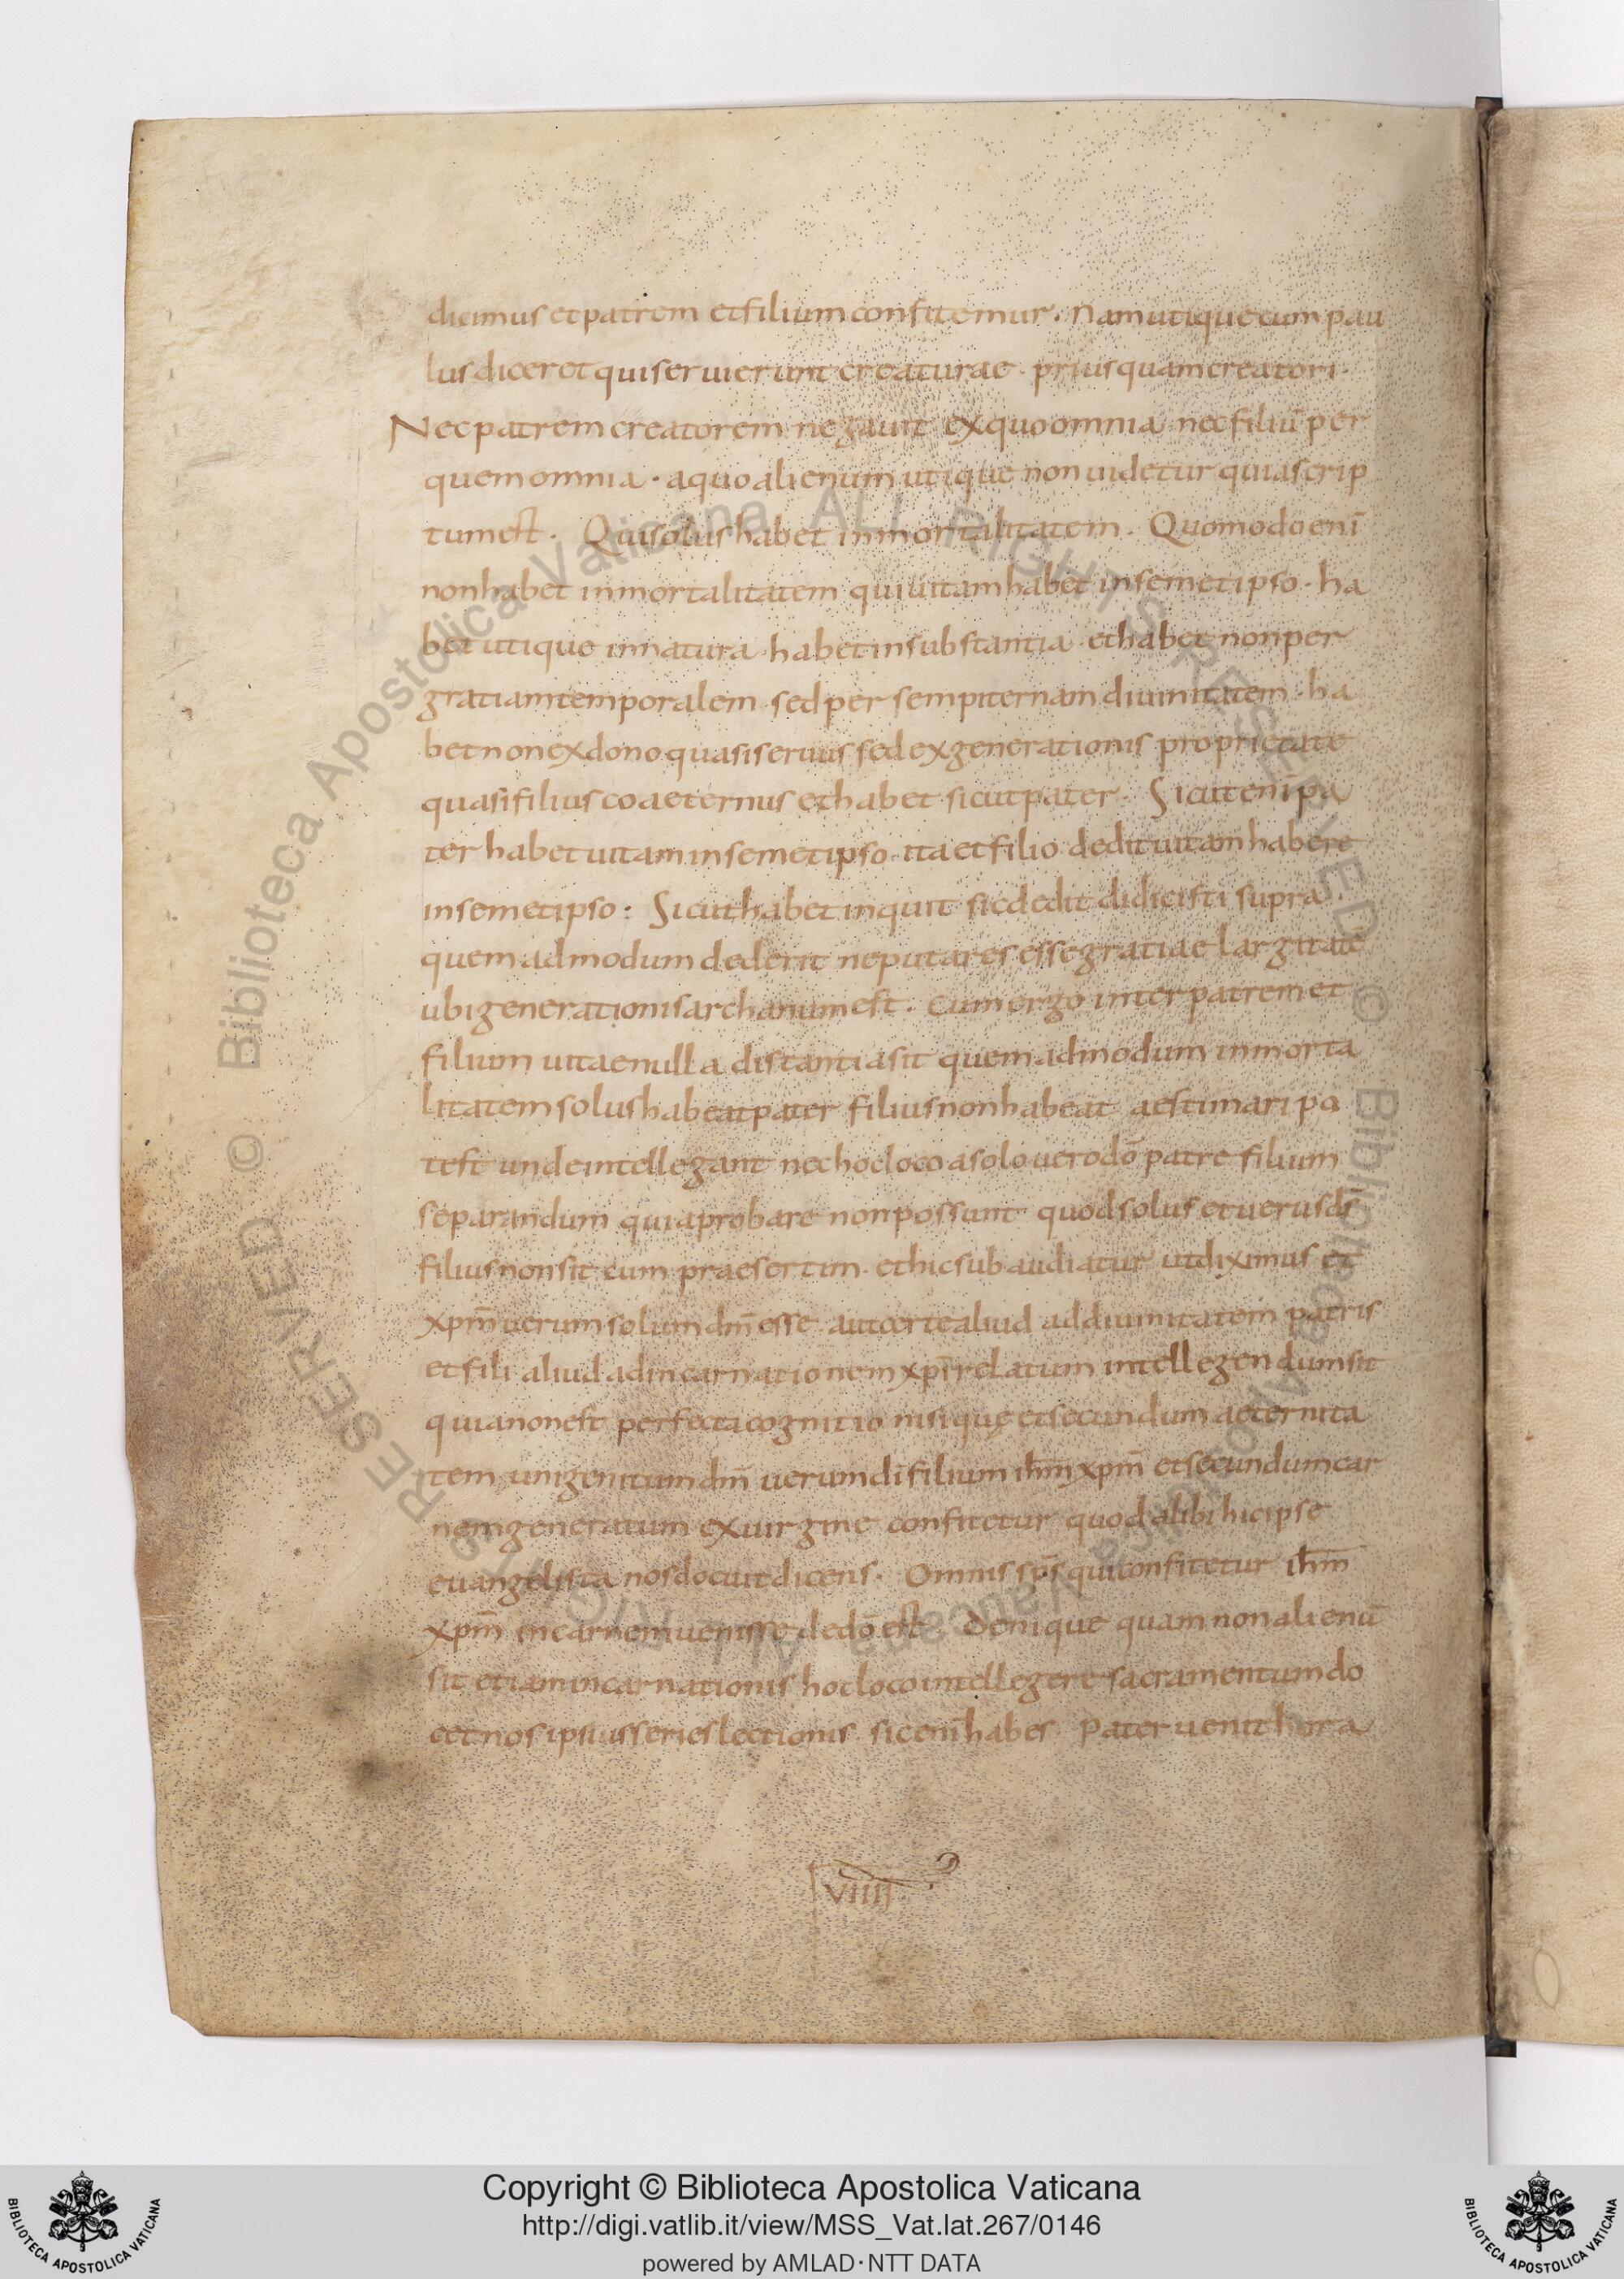 dicimus et patrem et filium confitemur. Nam utique cum pau
lus diceret qui seruierunt creaturae. prius quam creatori.
Nec patrem creatorem negauit ex quo omnia nec filiū per
quem omnia. a quo alienum utique non uidetur quia scrip
tum est. Qui solus habet inmortalitatem. Quomodo enī
non habet inmortalitatem qui uitam habet in semetipso. ha
bet utique in natura. habet in substantia. et habet non per
gratiam temporalem. sed per sempiternam diuinitatem. ha
bet non ex dono quasi seruus sed ex generationis proprietate
quasi filius coaeternus et habet sicut pater. Sicut eni pa
ter habet uitam in semetipso. ita et filio dedit uitam habere
in semetipso: Sicut habet inquit sic dedit didicisti supra.
quemadmodum dederit ne putares esse gratiae largitatē
ubi generationis archanum est. Cum ergo inter patrem et
filium uitae nulla distantia sit quemadmodum inmorta
litatem solus habeat pater filius non habeat aestimari po
test unde intellegant nec hoc loco a solo uero dō patre filium
separandum quia probare non possunt quod solus et uerus ds̄
filius non sit cum praesertim. et hic subaudiatur ut diximus et
xpm̄ uerum solum dm̄ esse aut certe aliud ad diuinitatem patris
et fili aliud ad incarnationem xpi̅ relatum intellegendum sit
quia non est perfecta cognitio nisi quę et secundum aeternita
tem unigenitum dm̄ uerum di̅ filium ihm̄ xpm̄ et secundum car
nem generatum ex uirgine confitetur quod alibi hic ipse
euangelista nos docuit dicens. Omnis sps̄ qui confitetur ihm̄
xpm̄ in carnem uenisse de dō est. Denique quam non alienū
sit etiam incarnationis hoc loco intellegere sacramentum do
cet nos ipsius series lectionis sic eni̅ habes. Pater uenit hora
VIIII
RESERVED © Biblioteca Apostolica Vaticana ALL RIGHTS RESERVED © Biblioteca Apostolica Vaticana ALL RIGHTS
Copyright © Biblioteca Apostolica Vaticana
http://digi.vatlib.it/view/MSS_Vat.lat.267/0146
powered by AMLAD·NTT DATA
BIBLIOTECA APOSTOLICA VATICANA
BIBLIOTECA APOSTOLICA VATICANA